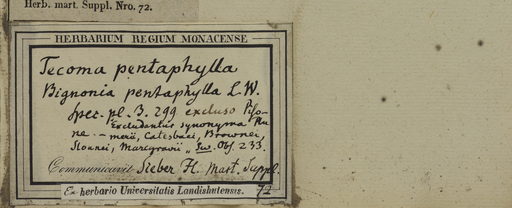 Herb. mart. Suppl. Nro. 72.
HERBARIUM REGIUM MONACENSE
Tecoma pentaphylla
Bignonia pentaphylla L. W.
spec. pl. 3. 299 excluso Piso-
ne. — Excludantur synonyma Plu-
merii, Catesbaei, Brownei,
Sloanei, Marcgravii „ Sw. Obs. 233.
Communicavit Sieber H. Mart. Suppl.
72
Ex herbario Universitatis Landishutensis.